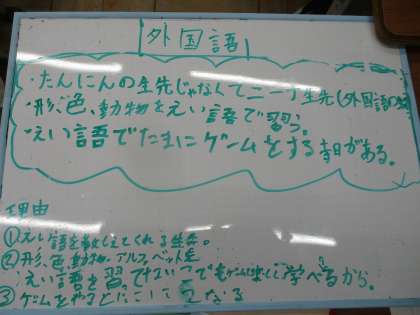 外国語
・たんにんの先生じゃなくてニーナ先生(外国語の
・形、色、動物をえい語で習う。
・えい語でたまにゲームをする時がある。
理由
①えい語を教えてくれる先生。
②形、色、動物、アルファベットを
えい語を習。
学べるから。
③ゲームをやる